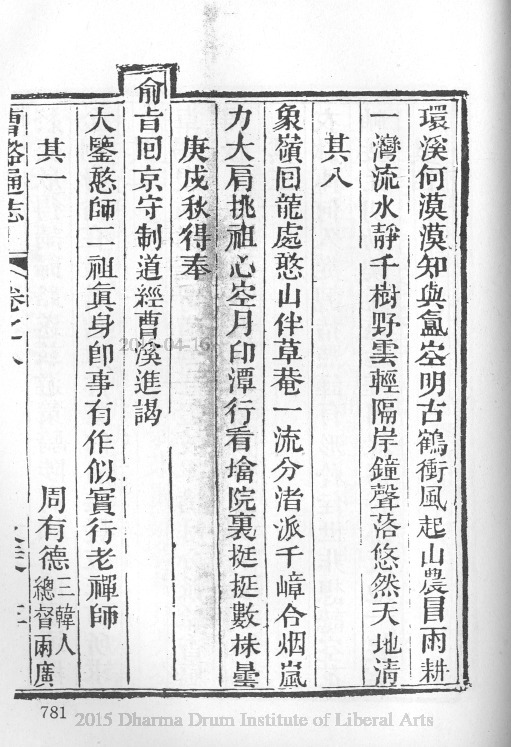 環溪何漠漠知與氳峃明古鶴衝風起山農冒雨耕
一灣流水靜千樹野雲輕隔岸鐘聲落悠然天地清
其八
象嶺囘龍處憨山伴草菴一流分渚派千嶂合烟嵐
力大肩挑祖心空月印潭行看墖院裏挺挺數株曇
庚戌秋得奉
俞旨囘京守制道經曹溪進謁
大鑒憨師二祖眞身卽事有作似實行老禪師
其一 周有德三韓人總督兩廣
曹谿通志 卷之八
781
2015 Dharma Drum Institute of Liberal Arts